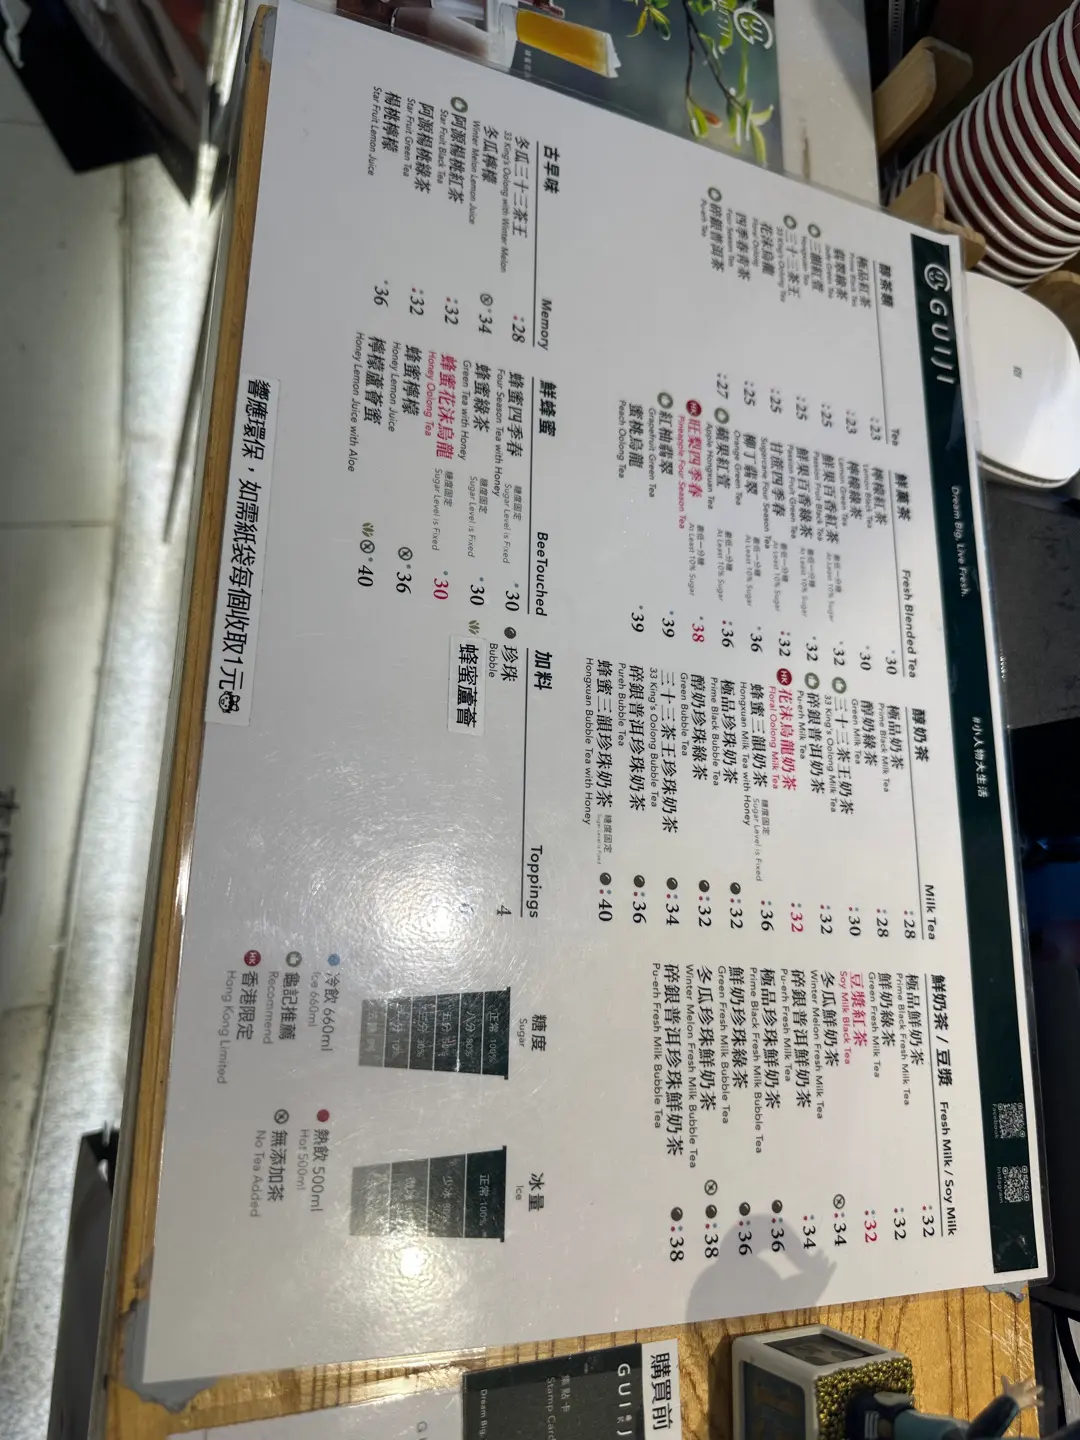 GUIJI
Dream Big, Live Fresh.
#小人物大生活
Facebook
Instagram
醇茶類 Tea
極品紅茶 23
Prime Black Tea
翡翠綠茶 23
三韻紅萱 25
Hongxuan Tea
三十三茶王 25
33 King's Oolong Tea
花沫烏龍 25
Floral Oolong
四季春青茶 25
Four Season Tea
碎銀普洱茶 27
Pu-erh Tea
鮮菓茶 Fresh Blended Tea
檸檬紅茶 30
Lemon Black Tea
檸檬綠茶 30
Lemon Green Tea
鮮果百香紅茶 最低一分糖 32
Passion Fruit Black Tea At Least 10% Sugar
鮮果百香綠茶 最低一分糖 32
Passion Fruit Green Tea At Least 10% Sugar
甘蔗四季春 最低一分糖 32
Sugarcane Four Season Tea At Least 10% Sugar
柳丁翡翠 最低一分糖 36
Orange Green Tea At Least 10% Sugar
蘋果紅萱 最低一分糖 36
Apple Hongxuan Tea At Least 10% Sugar
HK 旺梨四季春 最低一分糖 38
Pineapple Four Season Tea At Least 10% Sugar
紅柚翡翠 39
Grapefruit Green Tea
蜜桃烏龍 39
Peach Oolong Tea
醇奶茶 Milk Tea
極品奶茶 28
Prime Black Milk Tea
醇奶綠茶 28
Green Milk Tea
三十三茶王奶茶 30
33 King's Oolong Milk Tea
碎銀普洱奶茶 32
Pu-erh Milk Tea
HK 花沫烏龍奶茶 32
Floral Oolong Milk Tea
蜂蜜三韻奶茶 糖度固定 36
Hongxuan Milk Tea with Honey Sugar Level is Fixed
極品珍珠奶茶 32
Prime Black Bubble Tea
醇奶珍珠綠茶 32
Green Bubble Tea
三十三茶王珍珠奶茶 34
33 King's Oolong Bubble Tea
碎銀普洱珍珠奶茶 36
Pureh Bubble Tea
蜂蜜三韻珍珠奶茶 糖度固定 40
Hongxuan Bubble Tea with Honey Sugar Level is Fixed
鮮奶茶 / 豆漿 Fresh Milk / Soy Milk
極品鮮奶茶 32
Prime Black Fresh Milk Tea
鮮奶綠茶 32
Green Fresh Milk Tea
豆漿紅茶 32
Soy Milk Black Tea
冬瓜鮮奶茶 34
Winter Melon Fresh Milk Tea
碎銀普洱鮮奶茶 34
Pu-erh Fresh Milk Tea
極品珍珠鮮奶茶 36
Prime Black Fresh Milk Bubble Tea
鮮奶珍珠綠茶 36
Green Fresh Milk Bubble Tea
冬瓜珍珠鮮奶茶 38
Winter Melon Fresh Milk Bubble Tea
碎銀普洱珍珠鮮奶茶 38
Pu-erh Fresh Milk Bubble Tea
古早味 Memory
冬瓜三十三茶王 28
33 King's Oolong with Winter Melon
冬瓜檸檬 34
Winter Melon Lemon Juice
阿源楊桃紅茶 32
Star Fruit Black Tea
阿源楊桃綠茶 32
Star Fruit Green Tea
楊桃檸檬 36
Star Fruit Lemon Juice
鮮蜂蜜 BeeTouched
蜂蜜四季春 糖度固定 30
Four Season Tea with Honey Sugar Level is Fixed
蜂蜜綠茶 糖度固定 30
Green Tea with Honey Sugar Level is Fixed
蜂蜜花沫烏龍 糖度固定 30
Honey Oolong Tea Sugar Level is Fixed
蜂蜜檸檬 36
Honey Lemon Juice
檸檬蘆薈蜜 40
Honey Lemon Juice with Aloe
加料 Toppings
珍珠 4
Bubble
蜂蜜蘆薈
糖度
Sugar
正常 100%
八分 80%
五分 50%
三分 30%
冰量
Ice
正常 100%
冷飲 660ml
Ice 660ml
熱飲 500ml
Hot 500ml
龜記推薦
Recommend
無添加茶
No Tea Added
HK 香港限定
Hong Kong Limited
響應環保，如需紙袋每個收取1元
購買前
GUIJI
集點卡
Stamp Card
Dream Big,